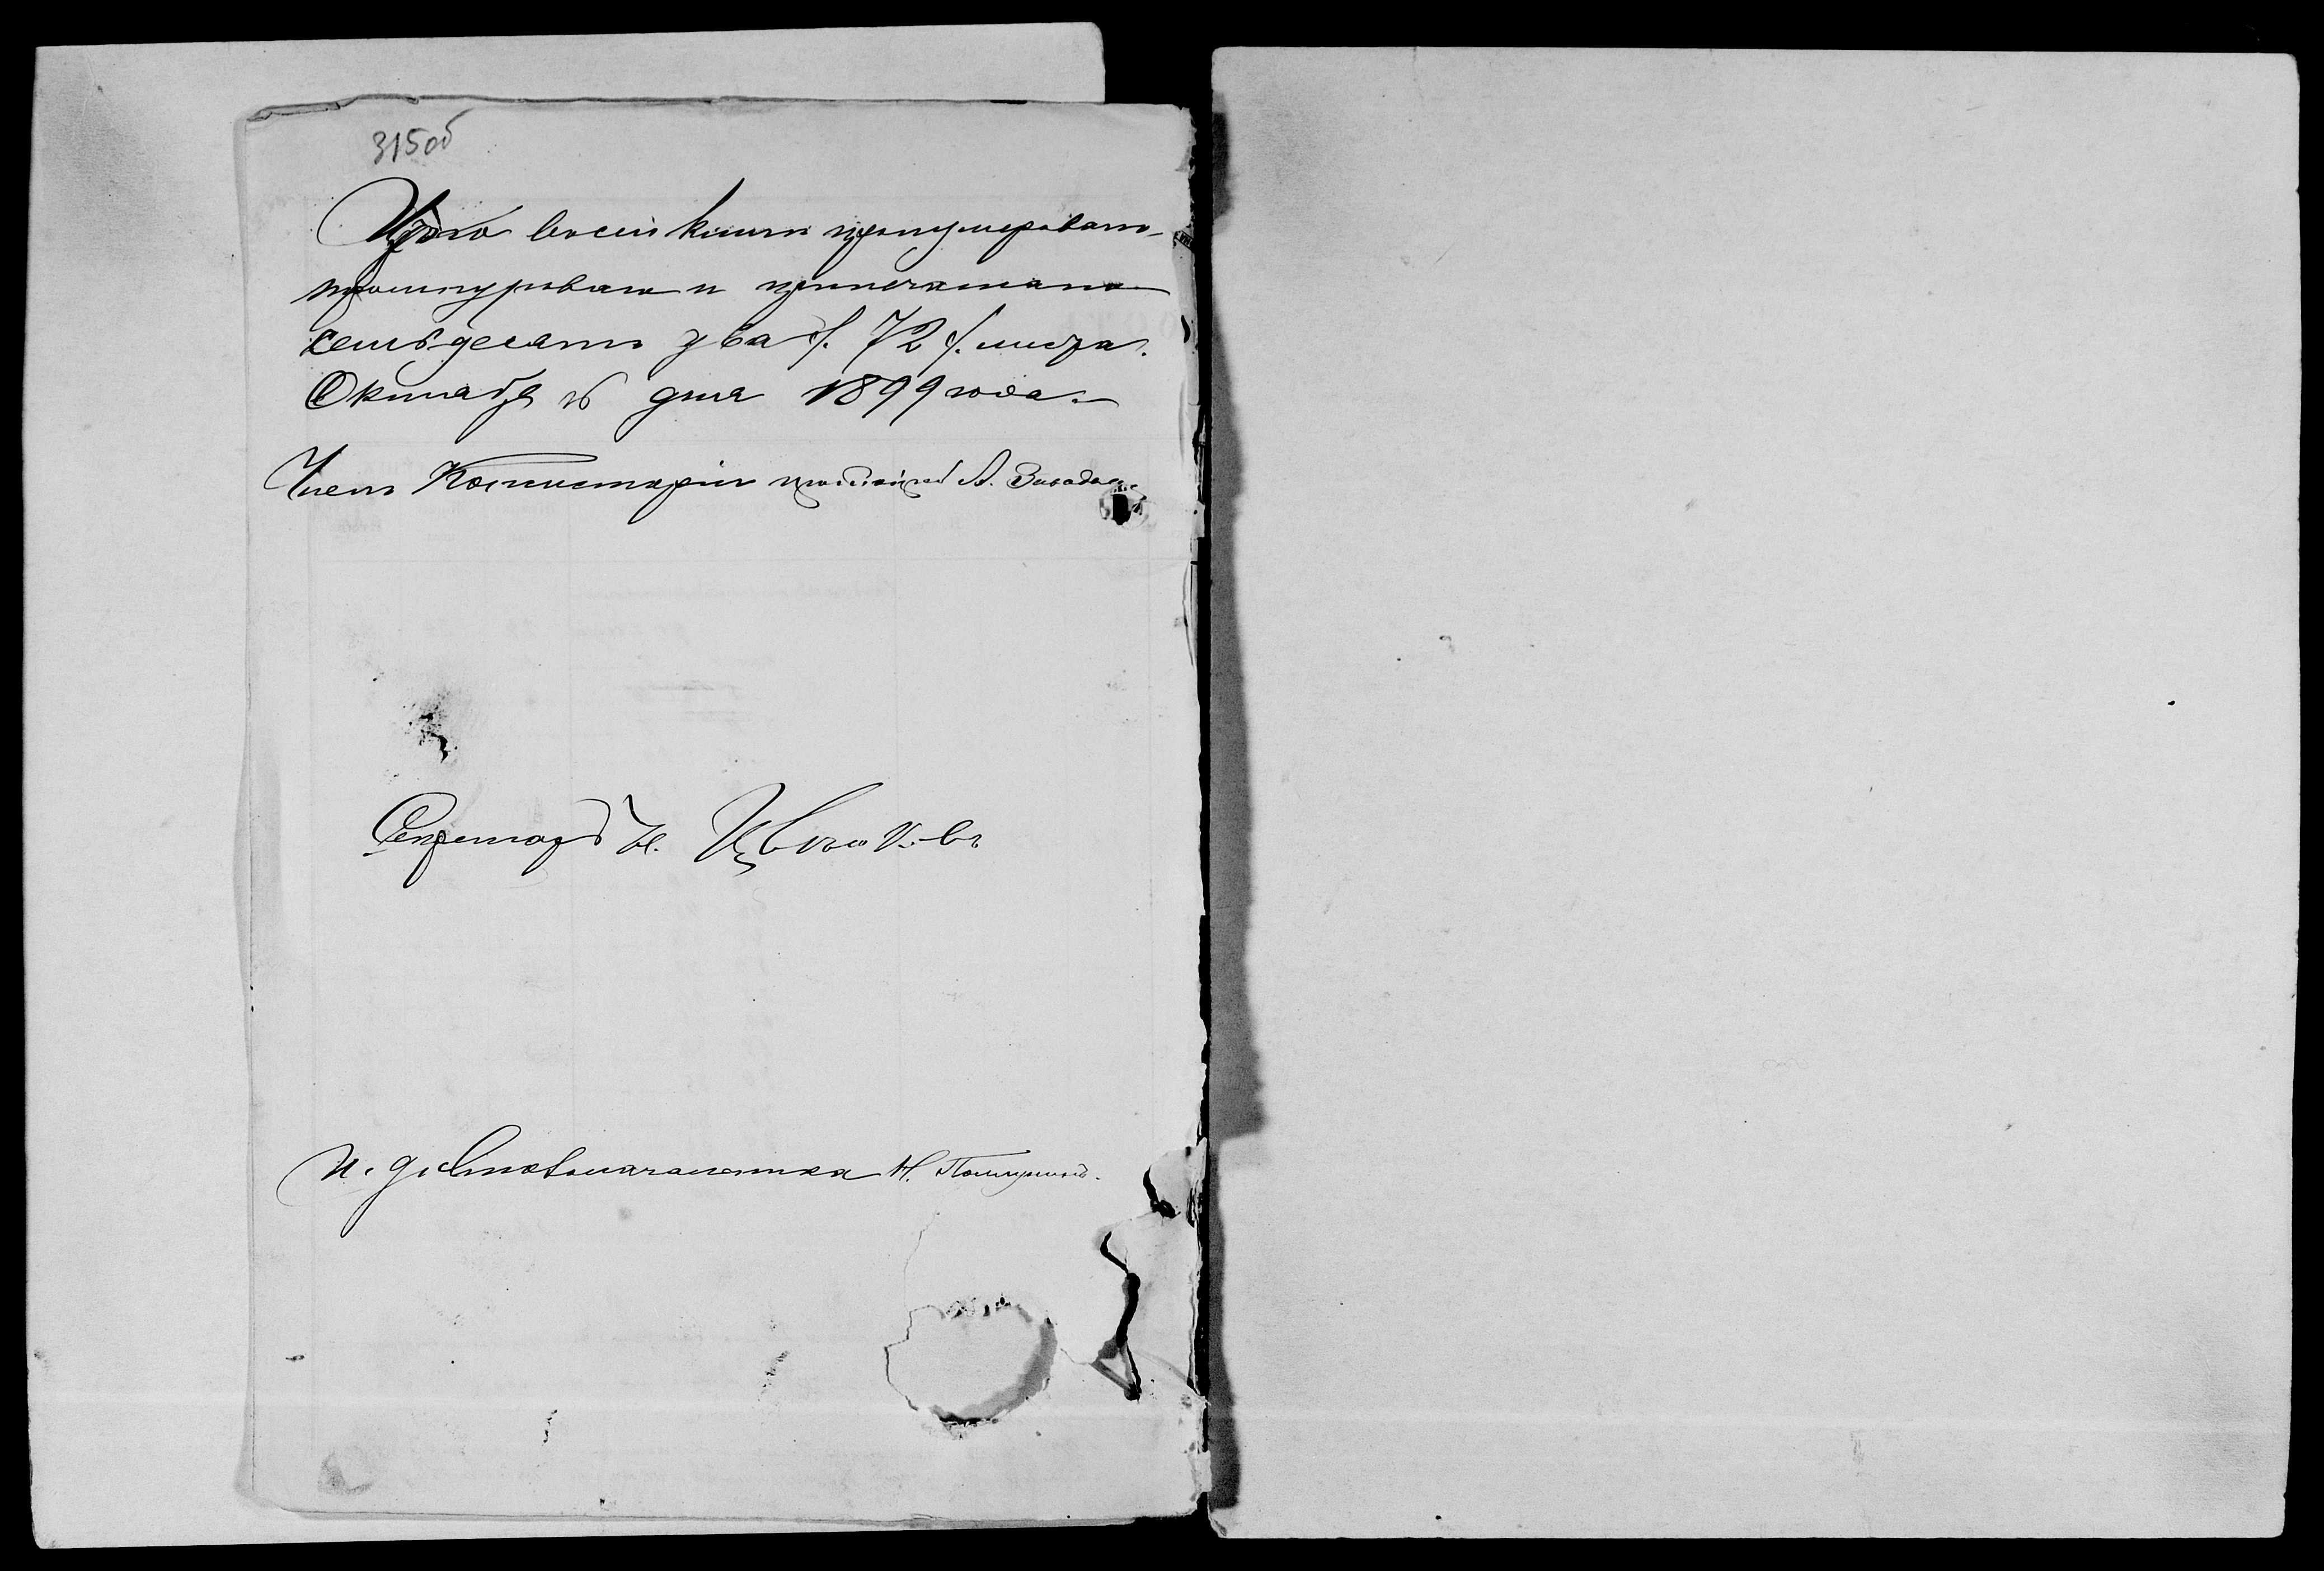 315об
Итого въ сей книгѣ пронумеровано,
прошнуровано и припечатано
семьдесятъ два /. 72 /. листа.
Октября 16 дня 1899 года.
Членъ Консисторіи протоіерей А.
Секретарь Н. Цвѣтковъ
И. д. Столоначальника Н.